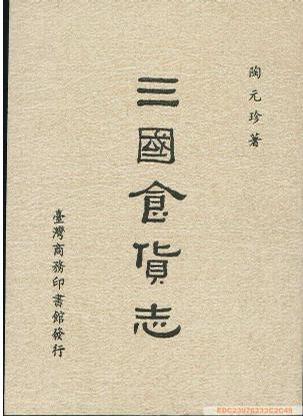 陶元珍著
三國食貨志
臺灣商務印書館發行